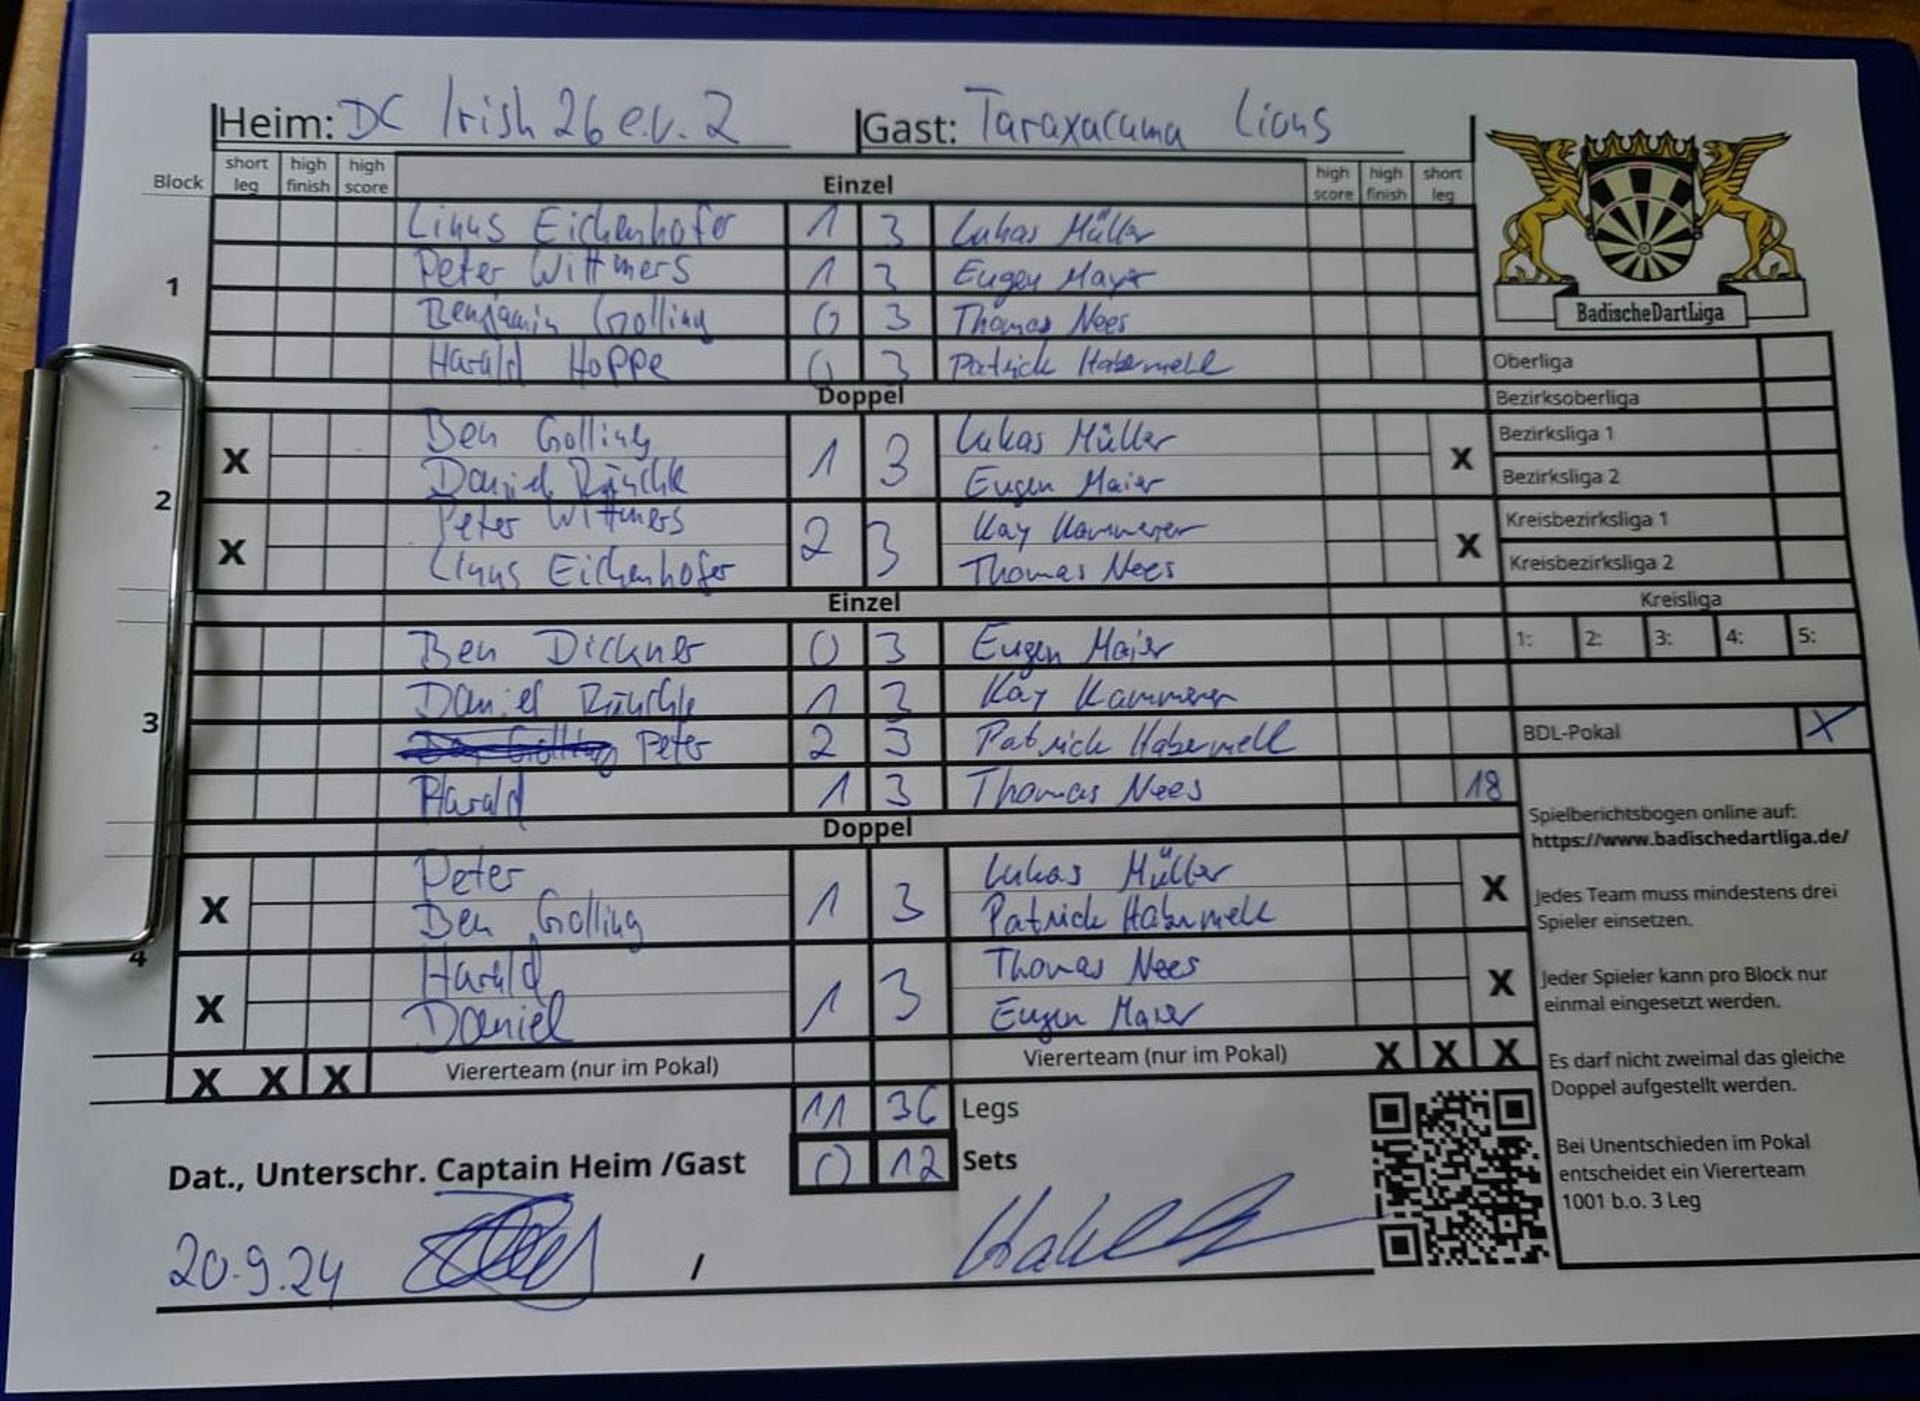 Heim: DC Irish 26 e.V. 2 Gast: Taraxacuma Lions
Block short leg high finish high score Einzel high score high finish short leg
1
Linus Eichenhofer 1 3 Lukas Müller
Peter Wittmers 1 3 Eugen Mayr
Benjamin Golling 0 3 Thomas Nees
Harald Hoppe 0 3 Patrick Habermehl
Doppel
2
X Ben Golling 1 3 Lukas Müller X
Daniel Eugen Maier
X Peter Wittmers 2 3 Kay Kammerer X
Linus Eichenhofer Thomas Nees
Einzel
3
Ben Dickner 0 3 Eugen Maier
Daniel 1 3 Kay Kammerer
Ben Golling Peter 2 3 Patrick Habermehl
Harald 1 3 Thomas Nees 18
Doppel
4
X Peter 1 3 Lukas Müller X
Ben Golling Patrick Habermehl
X Harald 1 3 Thomas Nees X
Daniel Eugen Maier
X X X Viererteam (nur im Pokal) Viererteam (nur im Pokal) X X X
11 36 Legs
0 12 Sets
Dat., Unterschr. Captain Heim /Gast
20.9.24 /
BadischeDartLiga
Oberliga
Bezirksoberliga
Bezirksliga 1
Bezirksliga 2
Kreisbezirksliga 1
Kreisbezirksliga 2
Kreisliga
1: 2: 3: 4: 5:
BDL-Pokal X
Spielberichtsbogen online auf:
https://www.badischedartliga.de/
Jedes Team muss mindestens drei
Spieler einsetzen.
Jeder Spieler kann pro Block nur
einmal eingesetzt werden.
Es darf nicht zweimal das gleiche
Doppel aufgestellt werden.
Bei Unentschieden im Pokal
entscheidet ein Viererteam
1001 b.o. 3 Leg